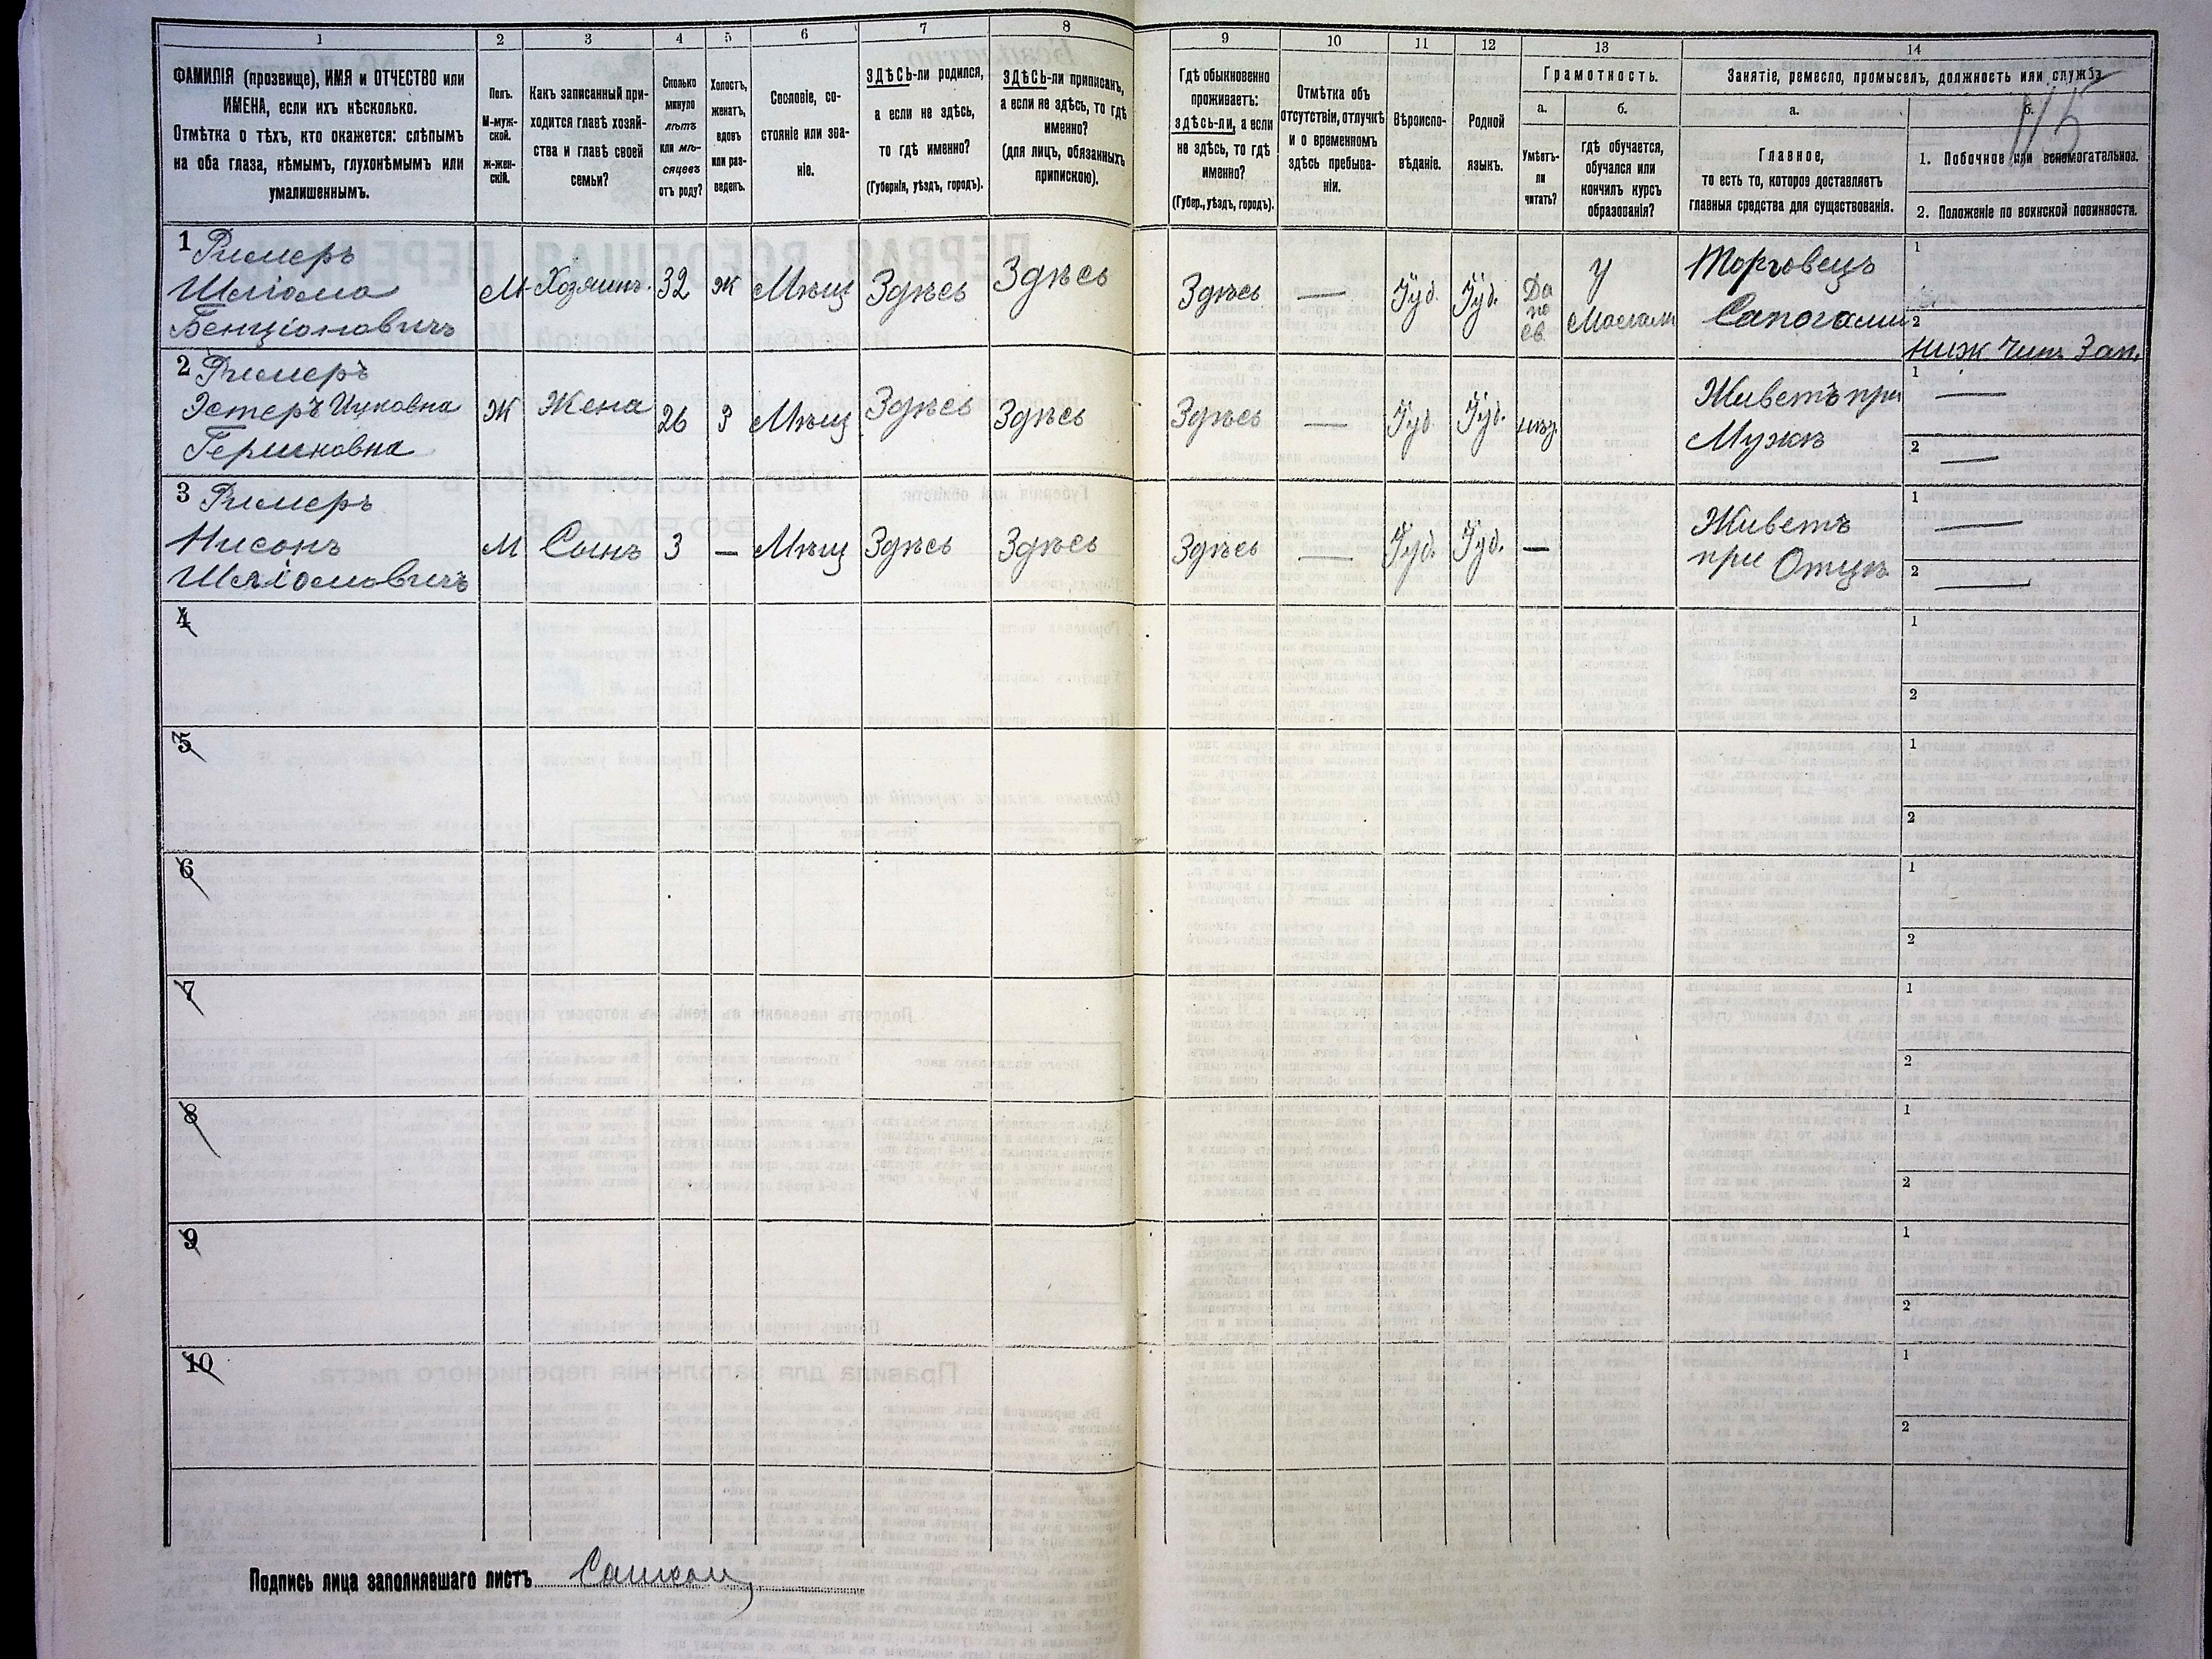 1 2 3 4 5 6 7 8 9 10 11 12 13 14
ФАМИЛІЯ (прозвище), ИМЯ и ОТЧЕСТВО или
ИМЕНА, если ихъ нѣсколько.
Отмѣтка о тѣхъ, кто окажется: слѣпымъ
на оба глаза, нѣмымъ, глухонѣмымъ или
умалишеннымъ.
Полъ.
М-муж-
ской.
Ж-жен-
скій.
Какъ записанный при-
ходится главѣ хозяй-
ства и главѣ своей
семьи?
Сколько
минуло
лѣтъ
или мѣ-
сяцевъ
отъ роду?
Холостъ,
женатъ,
вдовъ
или раз-
веденъ.
Сословіе, со-
стояніе или зва-
ніе.
ЗДѢСЬ-ли родился,
а если не здѣсь,
то гдѣ именно?
(Губернія, уѣздъ, городъ).
ЗДѢСЬ-ли приписанъ,
а если не здѣсь, то гдѣ
именно?
(для лицъ, обязанныхъ
припискою).
Гдѣ обыкновенно
проживаетъ:
здѣсь-ли, а если
не здѣсь, то гдѣ
именно?
(Губер., уѣздъ, городъ).
Отмѣтка объ
отсутствіи, отлучкѣ
и о временномъ
здѣсь пребыва-
ніи.
Вѣроиспо-
вѣданіе.
Родной
языкъ.
Грамотность.
а.
Умѣетъ-
ли
читать?
б.
гдѣ обучается,
обучался или
кончилъ курсъ
образованія?
Занятіе, ремесло, промыселъ, должность или служба.
а.
Главное,
то есть то, которое доставляетъ
главныя средства для существованія.
б.
115
1. Побочное или вспомогательное.
2. Положеніе по воинской повинности.
1 Римеръ
Шліома
Бенціоновичъ
М Хозяинъ. 32 ж Мѣщ Здѣсь Здѣсь Здѣсь — Іуд. Іуд.
Да
по
Ев.
У
Торговецъ
Сапогами
1
2
ниж Чинъ Зап.
2 Римеръ
Эстеръ Ицковна
Гершковна
Ж Жена 26 З Мѣщ Здѣсь Здѣсь Здѣсь — Іуд. Іуд.
Живетъ при
Мужѣ
1 —
2 —
3 Римеръ
Нисонъ
Шліомовичъ
М Сынъ 3 — Мѣщ Здѣсь Здѣсь Здѣсь — Іуд. Іуд. —
Живетъ
при Отцѣ
1 —
2 —
4
1
2
5
1
2
6
1
2
7
1
2
8
1
2
9
1
2
10
1
2
Подпись лица заполнявшаго листъ